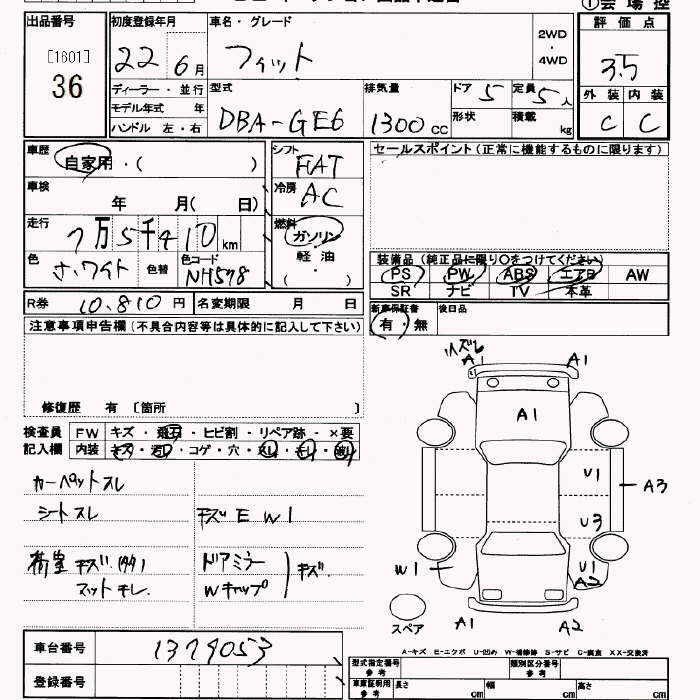 出品番号
[1601]
36
初度登録年月
22 6月
車名・グレード
フィット
2WD
・
4WD
①会場控
評価点
3.5
外装 内装
C C
ディーラー・並行
モデル年式 年
ハンドル 左・右
型式
DBA-GE6
排気量
1300cc
ドア 5
形状
定員 5人
積載 kg
車歴
自家用・( )
車検
年 月( 日)
走行
7万5千410km
色
ホワイト
色替
色コード
NH578
シフト
FAT
冷房
AC
燃料
ガソリン
軽・油
( )
セールスポイント(正常に機能するものに限ります)
装備品(純正品に限り○をつけてください)
PS PW ABS エアB AW
SR ナビ TV 本革
R券 10,810円
名変期限 月 日
新車保証書
有・無
後日品
注意事項申告欄(不具合内容等は具体的に記入して下さい)
修復歴 有 〔箇所 〕
検査員
記入欄
FW キズ・飛石・ヒビ割・リペア跡・×要
内装 キズ・汚レ・コゲ・穴・
カーペットスレ
シートスレ
キズ E W1
ドアミラー
Wキャップ
キズ
マットキレ
A1
A1
A1
U1
A3
U3
W1
U1
A2
A1
A2
スペア
A-キズ E-エクボ U-凹め W-補修跡 S-サビ C-腐食 XX-交換済
車台番号
1379053
登録番号
型式指定番号
参考
類別区分番号
参考
車庫証明用
参考
長さ cm
幅 cm
高さ cm